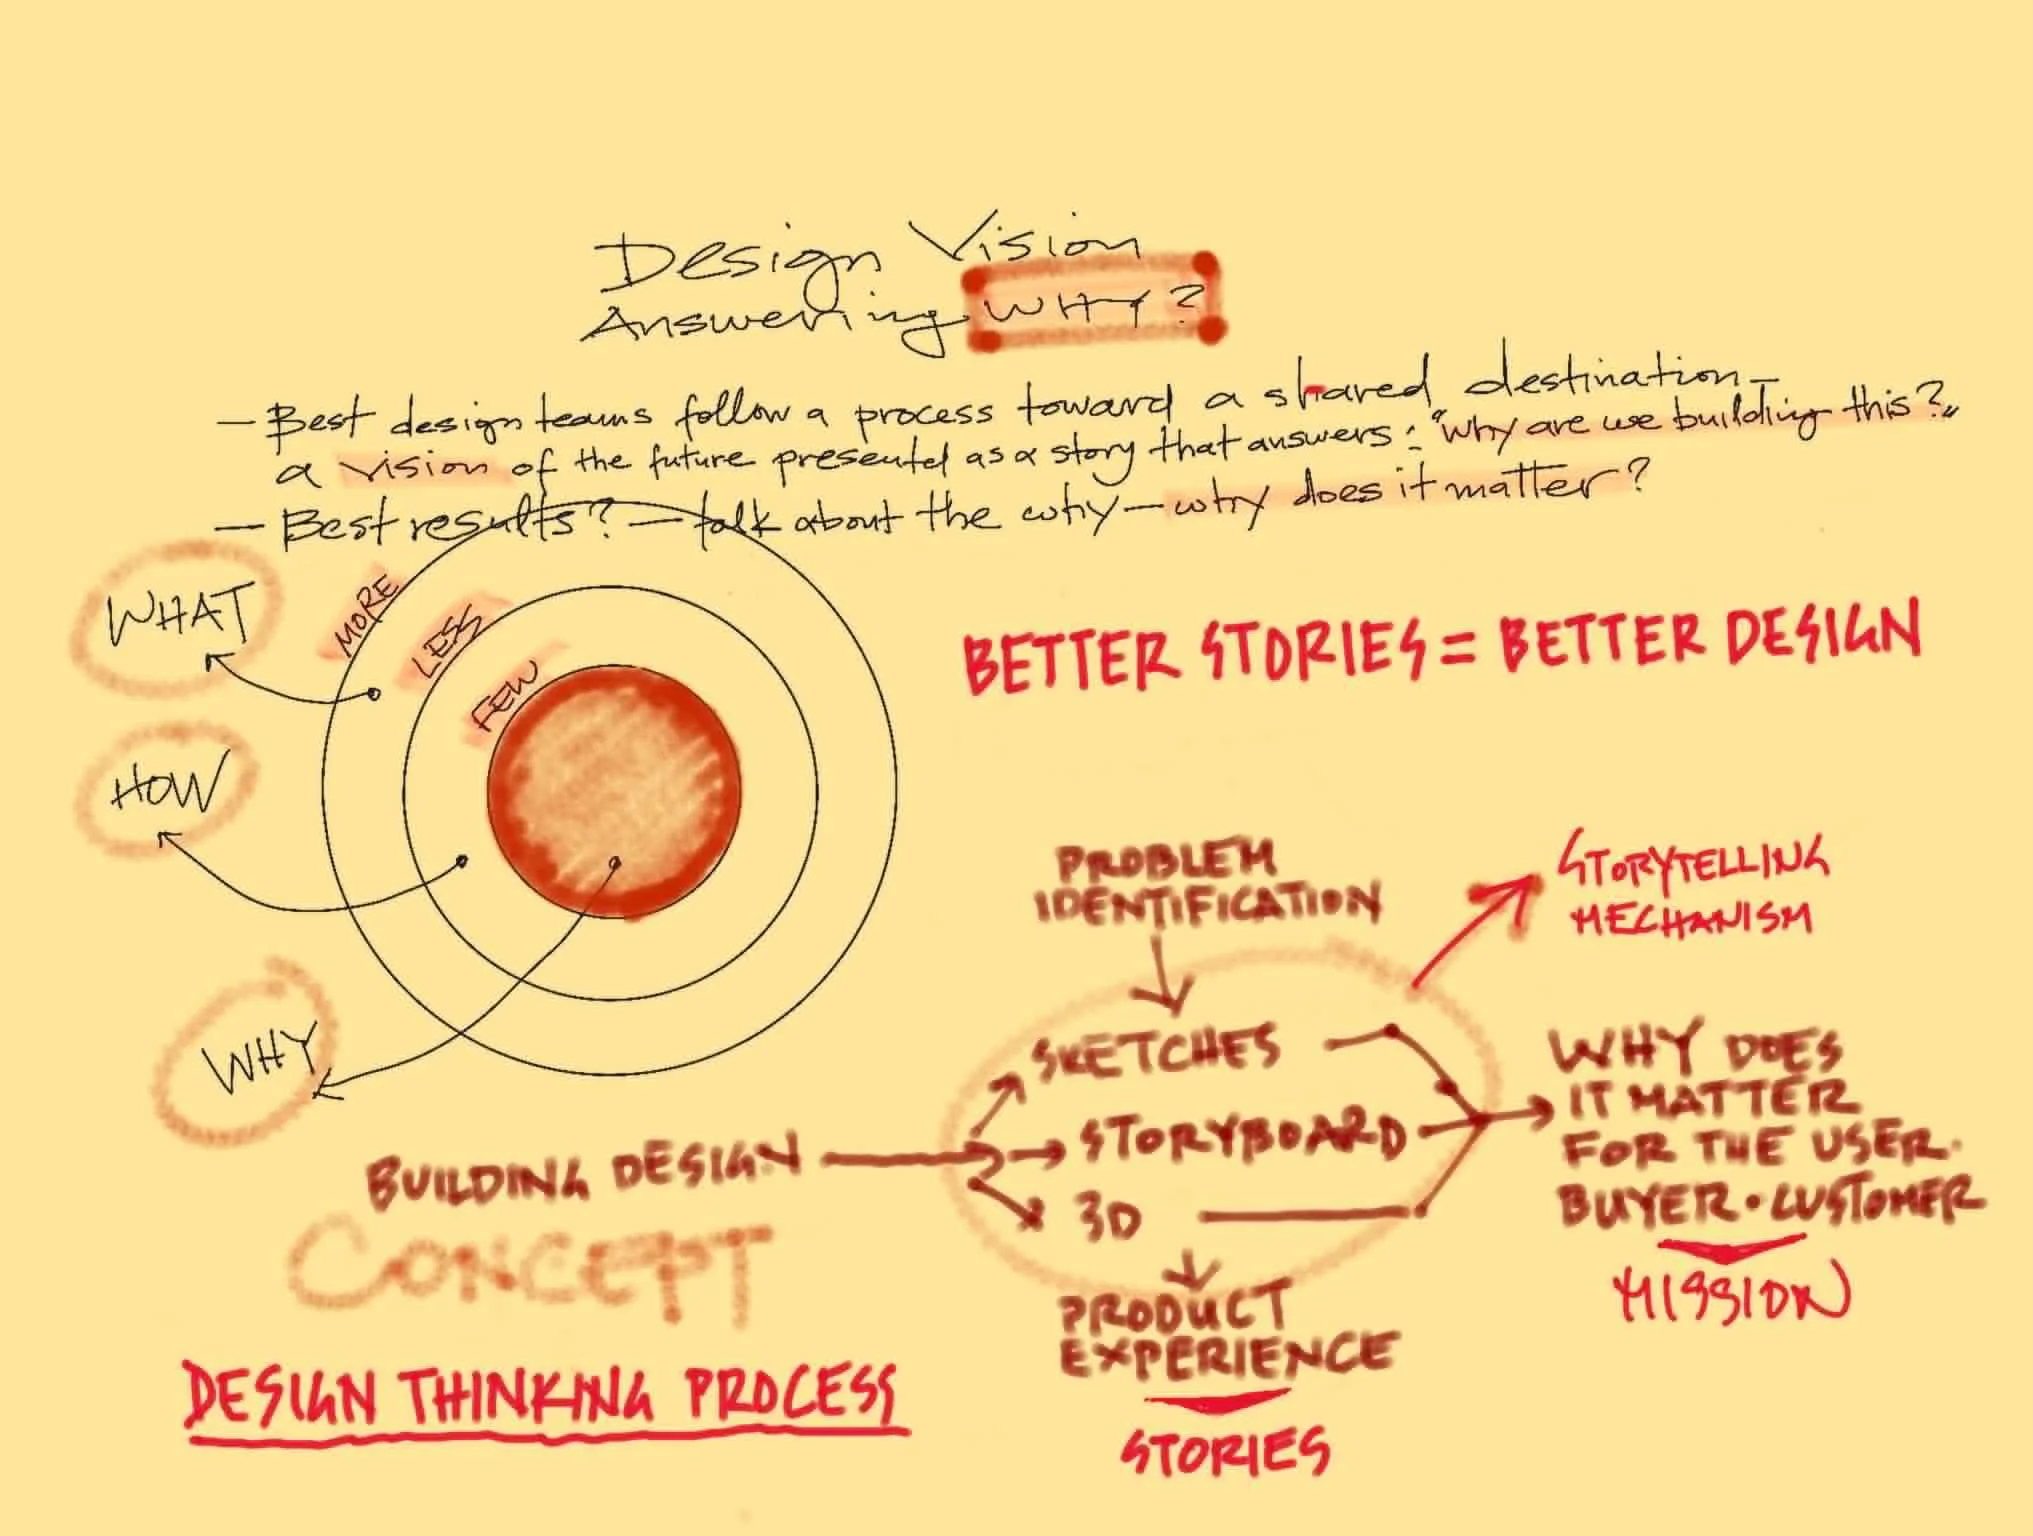 Design Vision
Answering WHY?
- Best design teams follow a process toward a shared destination -
a vision of the future presented as a story that answers: "why are we building this?"
- Best results? - talk about the why - why does it matter?
WHAT
MORE
LESS
FEW
HOW
WHY
BETTER STORIES = BETTER DESIGN
PROBLEM
IDENTIFICATION
STORYTELLING
MECHANISM
SKETCHES
STORYBOARD
3D
WHY DOES
IT MATTER
FOR THE USER.
BUYER • CUSTOMER
MISSION
BUILDING DESIGN
CONCEPT
PRODUCT
EXPERIENCE
STORIES
DESIGN THINKING PROCESS